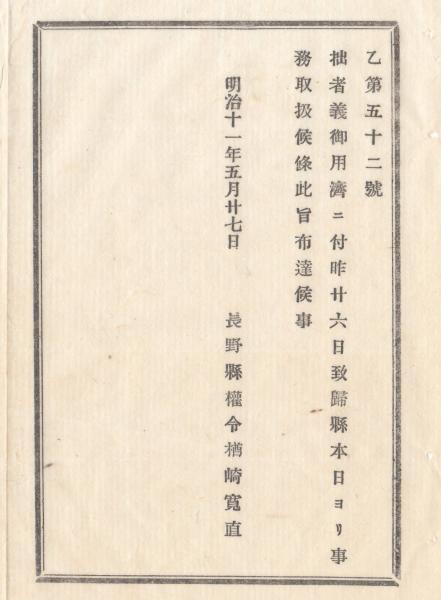 乙第五十二號
拙者義御用濟ニ付昨廿六日致歸縣本日ヨリ事
務取扱候條此旨布達候事
明治十一年五月廿七日　長野縣權令楢崎寬直